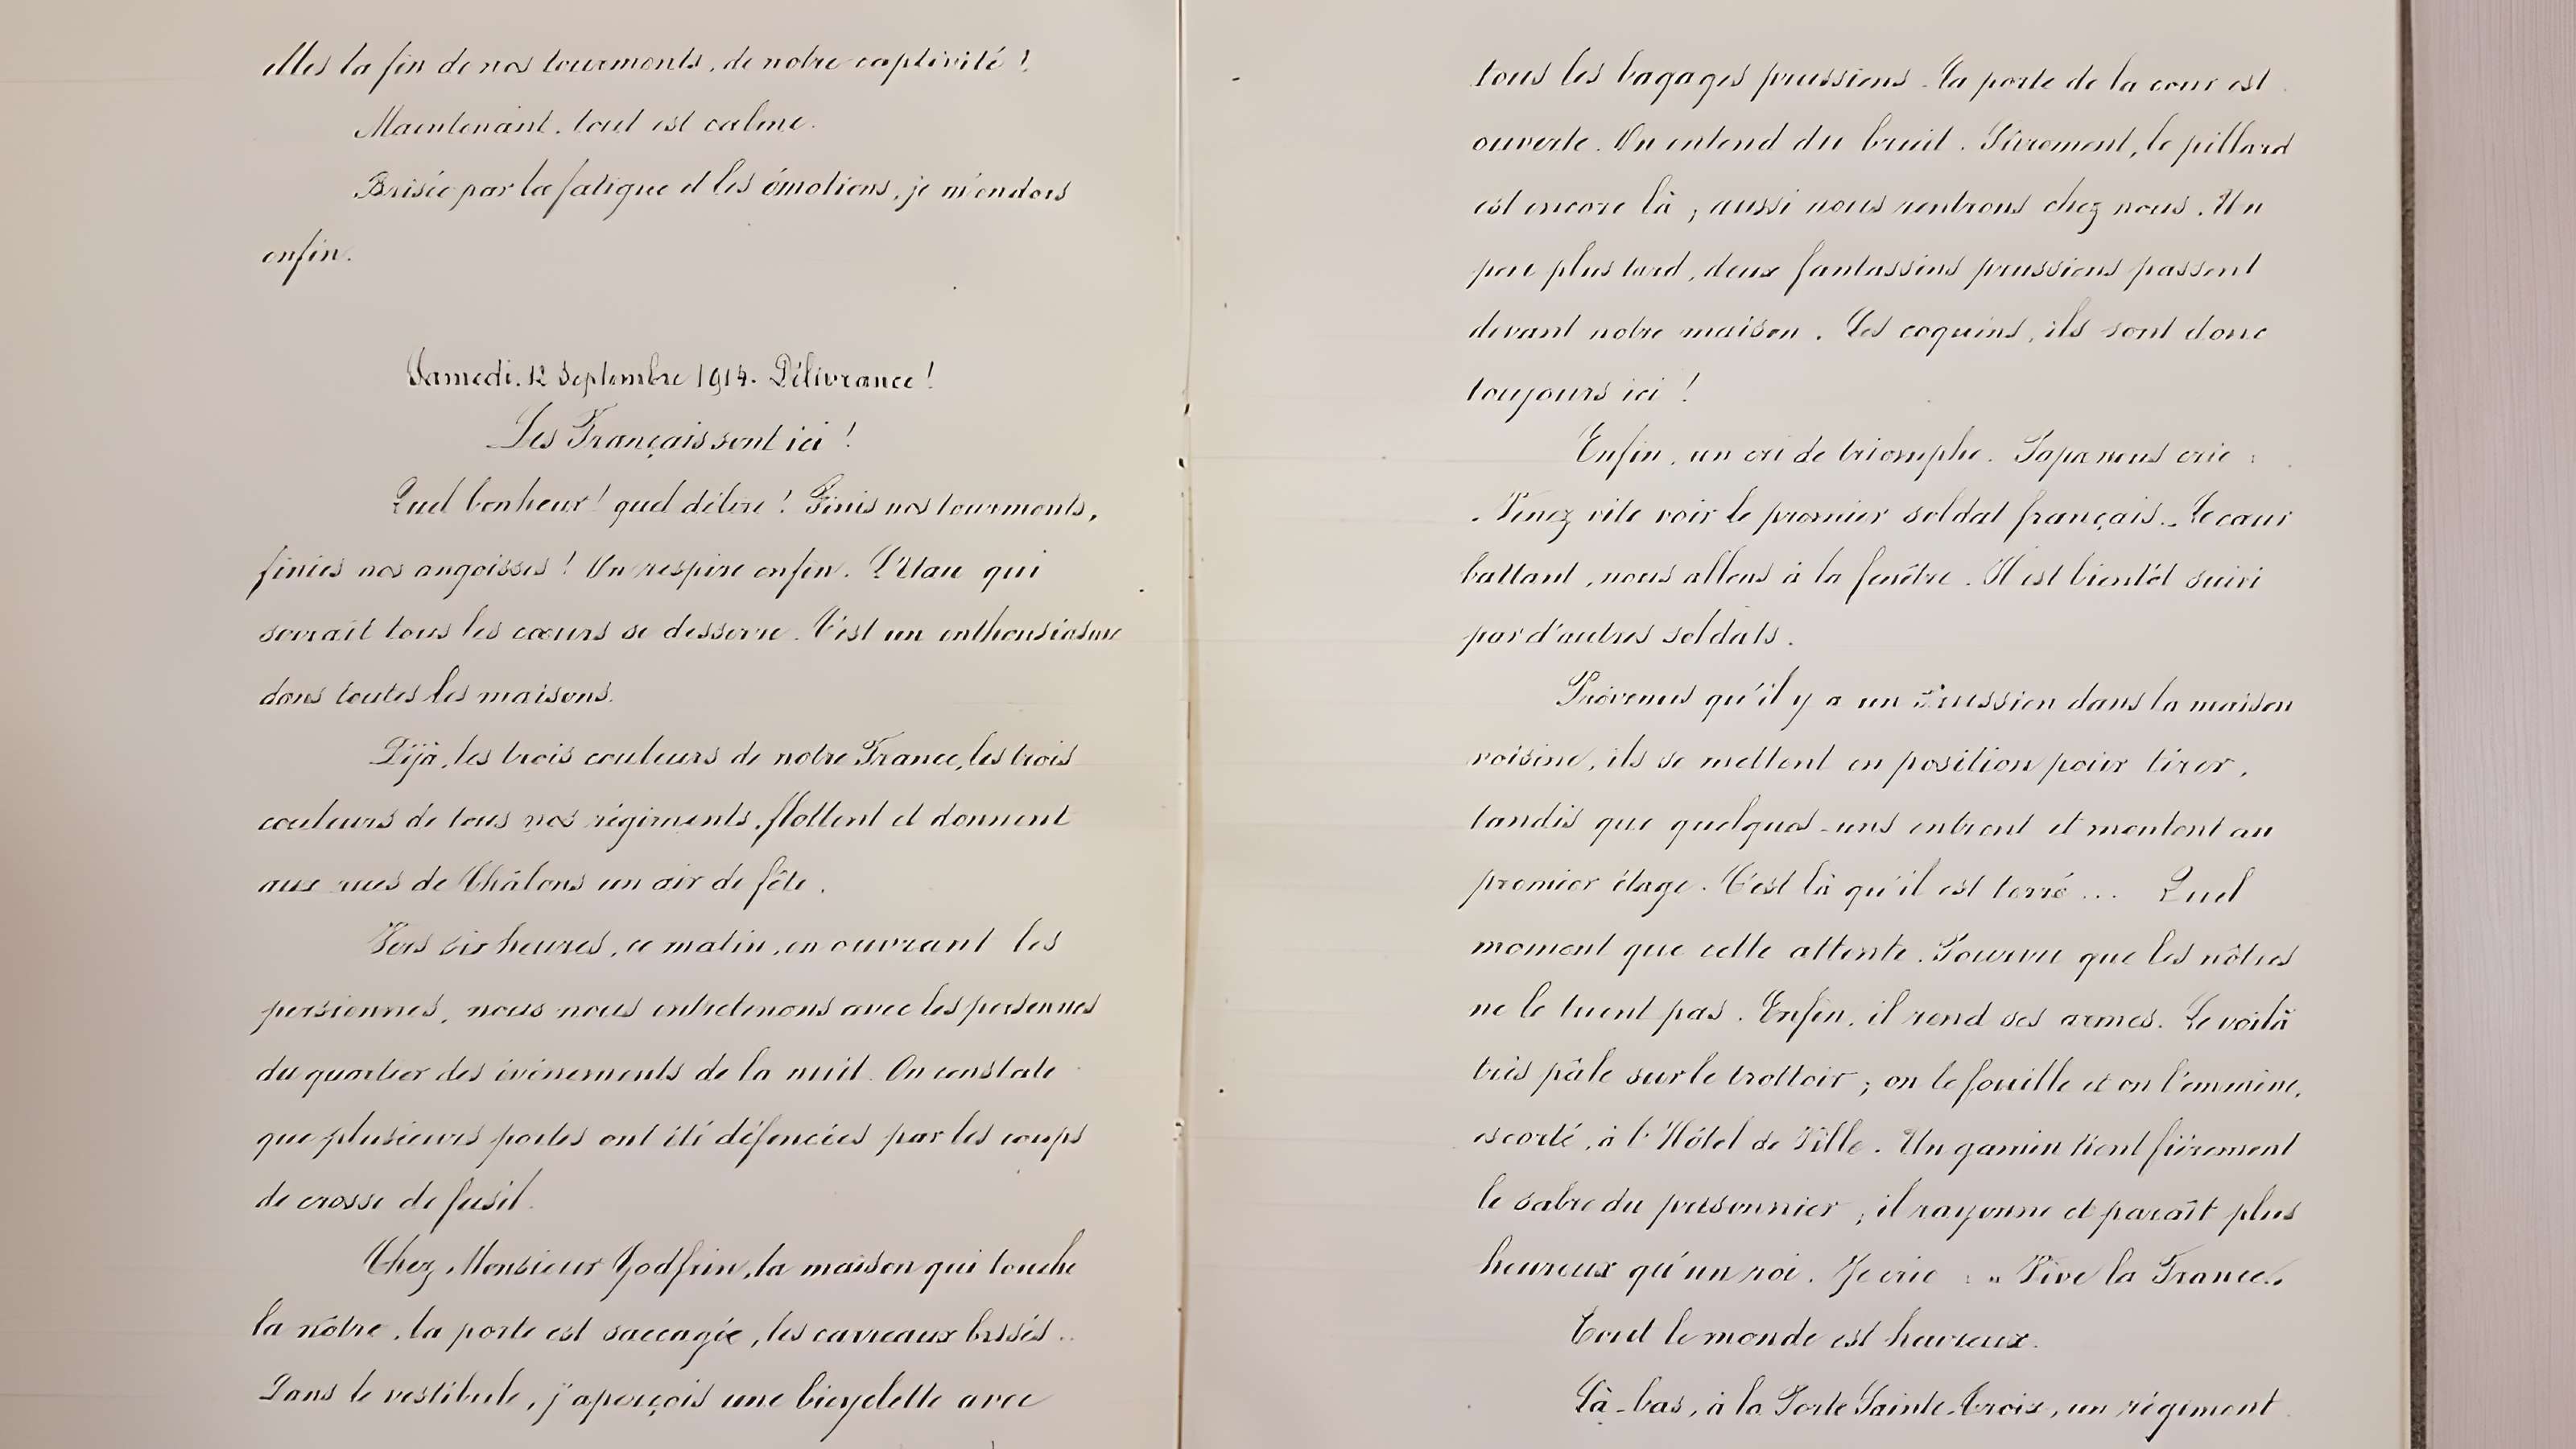 elles la fin de nos tourments, de notre captivité !
Maintenant, tout est calme.
Brisée par la fatigue et les émotions, je m'endors
enfin.
Samedi. 12 Septembre 1914. Délivrance !
Les Français sont ici !
Quel bonheur ! quel délire ! Finis nos tourments,
finies nos angoisses ! On respire enfin. L'étau qui
serrait tous les cœurs se desserre. C'est un enthousiasme
dans toutes les maisons.
Déjà, les trois couleurs de notre France, les trois
couleurs de tous nos régiments, flottent et donnent
aux rues de Châlons un air de fête.
Vers six heures, ce matin, en ouvrant les
persiennes, nous nous entretenons avec les personnes
du quartier des évènements de la nuit. On constate
que plusieurs portes ont été défoncées par les coups
de crosse de fusil.
Chez Monsieur Godfrin, la maison qui touche
la nôtre, la porte est saccagée, les carreaux brisés..
Dans le vestibule, j'aperçois une bicyclette avec
tous les bagages prussiens. La porte de la cour est
ouverte. On entend du bruit. Sûrement, le pillard
est encore là ; aussi nous rentrons chez nous. Un
peu plus tard, deux fantassins prussiens passent
devant notre maison. Les coquins, ils sont donc
toujours ici !
Enfin, un cri de triomphe. Papa nous crie :
" Venez vite voir le premier soldat français." Le cœur
battant, nous allons à la fenêtre. Il est bientôt suivi
par d'autres soldats.
Prévenus qu'il y a un Prussien dans la maison
voisine, ils se mettent en position pour tirer,
tandis que quelques-uns entrent et montent au
premier étage. C'est là qu'il est terré ... Quel
moment que cette attente. Pourvu que les nôtres
ne le tuent pas. Enfin, il rend ses armes. Le voilà
très pâle sur le trottoir ; on le fouille et on l'emmène,
escorté, à l'Hôtel de Ville. Un gamin tient fièrement
le sabre du prisonnier ; il rayonne et paraît plus
heureux qu'un roi. Je crie : " Vive la France".
Tout le monde est heureux.
Là-bas, à la Porte Sainte-Croix, un régiment